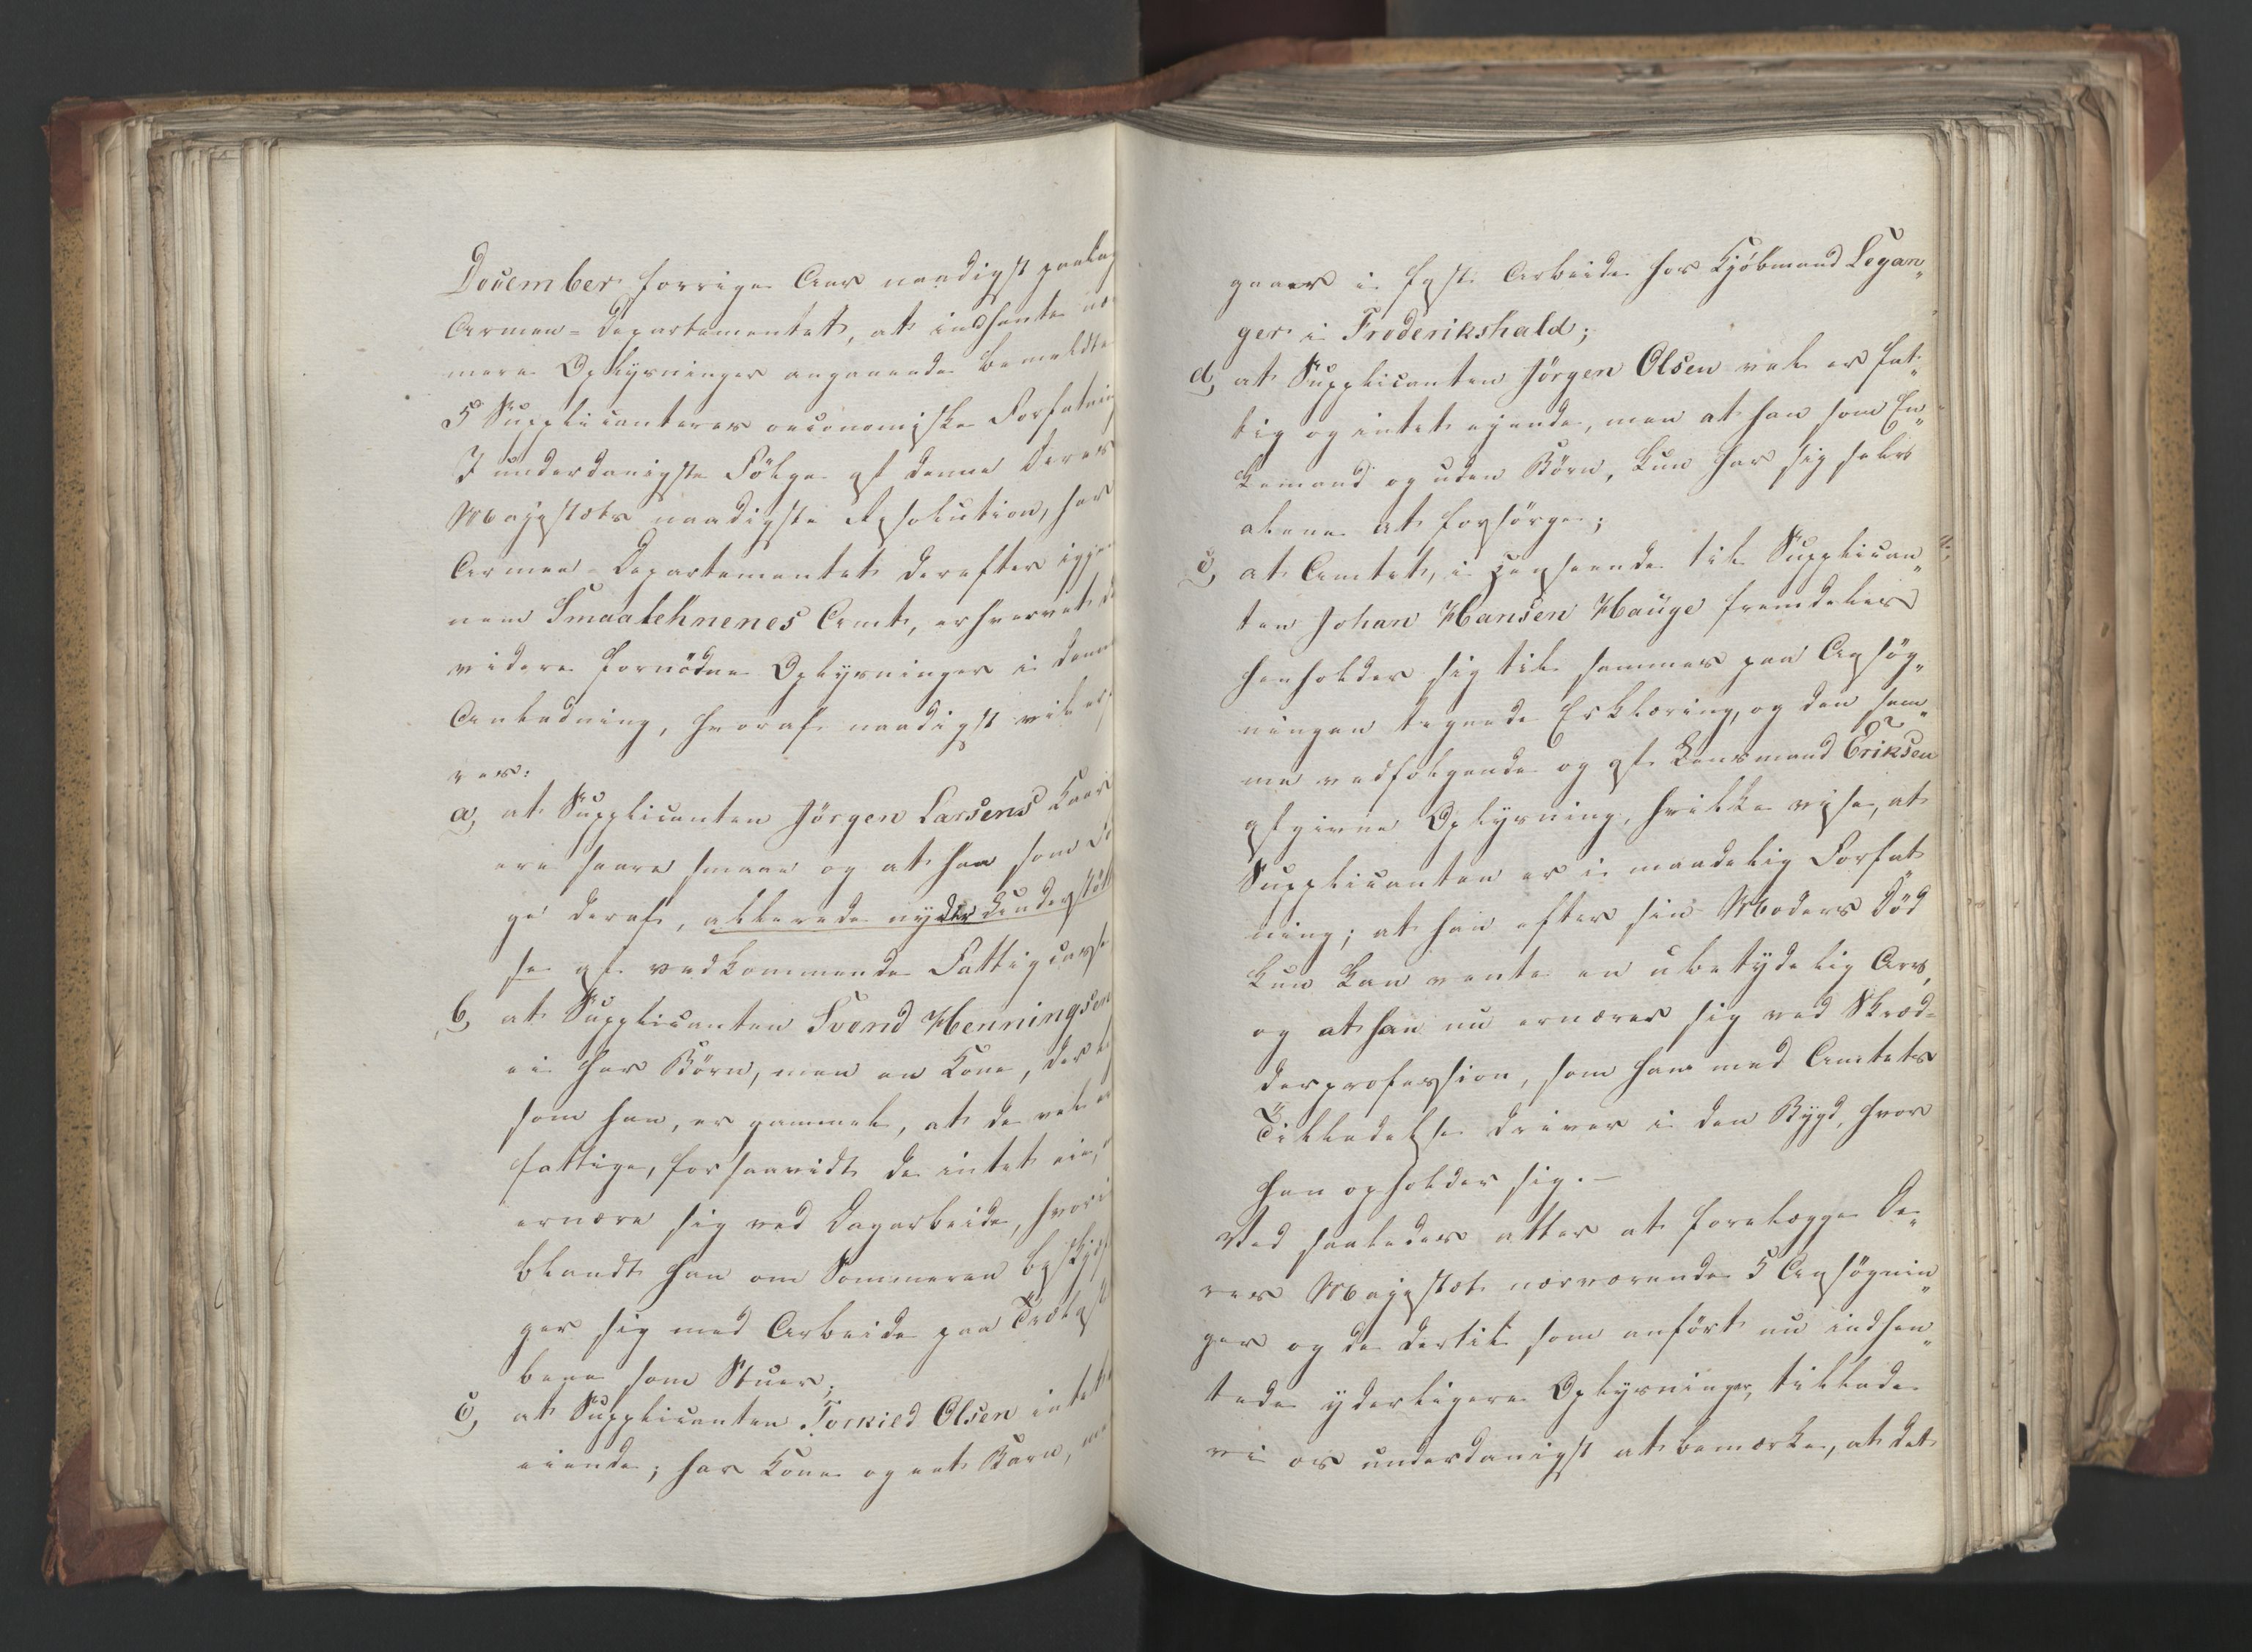 December forrige Aar naadigst paalag
Armee-Departementet, at indhente næ
mere Oplysninger angaaende bemeldte
5 Supplicanteres oeconomiske Forfatning
I underdanigste Fölge af denne Deres
Majestæts naadigste Resolution, har
Armee-Departementet derefter igjen
nem Smaalehnenes Amt, erhvervet de
videre fornödne Oplysninger i denne
Anledning, hvoraf naadigst vil er
res:
a, at Supplicanten Jörgen Larsens Kaar
ere saare smaae og at han som Fö
ge deraf, allerede nyder Understöttel
se af vedkommende Fattigcasse
b, at Supplicanten Svend Henningsen
ei har Börn, men en Kone, der li
som han, er gammel, at de vel er
fattige, forsaavidt de intet eie,
ernære sig ved Dagarbeide, hvori
blandt han om Sommeren beskjæf
ger sig med Arbeide paa Trælast
bene som Stuer;
c, at Supplicanten Torkild Olsen intet
eiende; har Kone og eet Barn, m
gaaer i fast Arbeide hos Kjöbmand Legan„
ger i Frederikshald;
d, at Supplicanten Jörgen Olsen vel er fat„
tig og intet ejende, men at han som En„
kemand og uden Börn, kun har sig selv
alene at forsörge;
e, at Amtet, i Henseende til Supplican„
ten Johan Hansen Hauge fremdeles
henholder sig til sammes paa Ansög„
ningen tegnede Erklæring, og den sam„
me vedfölgende og af Lensmand Eriksen
afgivne Oplysning, hvilke vise, at
Supplicanten er i maadelig Forfat
ning; at han efter sin Moders Död
kun kan vente en ubetydelig Arv,
og at han nu ernærer sig ved Skræd-
derprofession, som han med Amtets
Tilladelse driver i den Bygd, hvor
han opholder sig.-
Ved saaledes atter at forelægge De„
res Majestæt nærværende 5 Ansögnin„
ger og de dertil som anfört nu indhen„
tede yderligere Oplysninger, tillade
vi os underdanigst at bemærke, at det